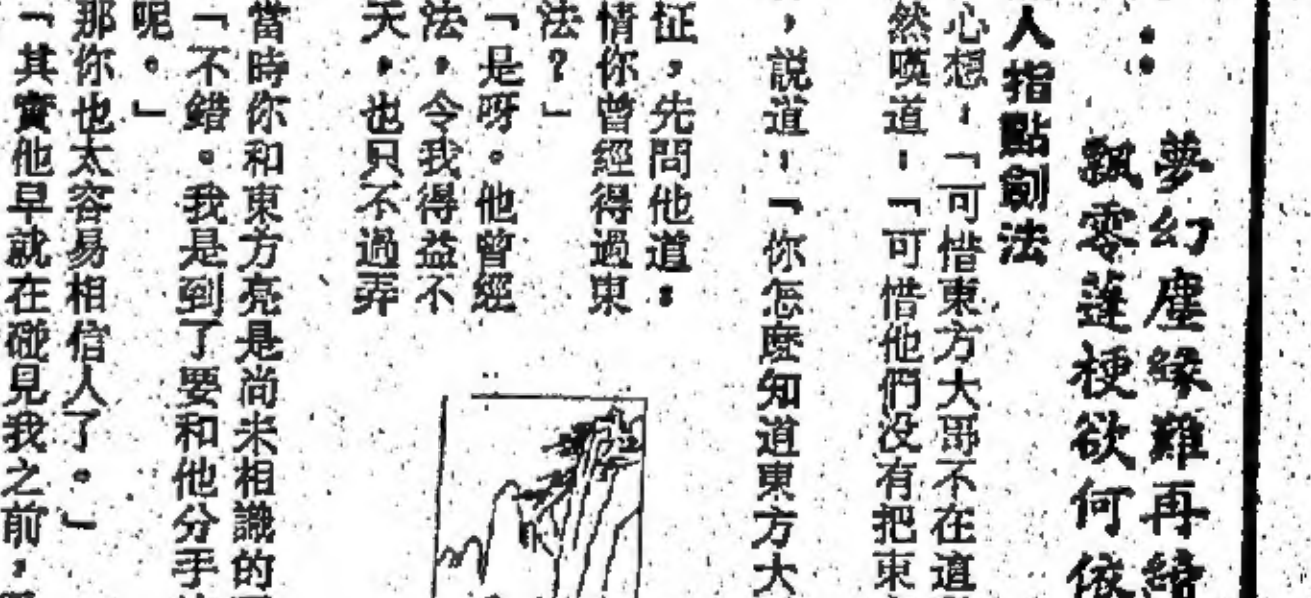 ：夢幻塵緣難再續
飄零蓬梗欲何依
人指點劍法
心想，「可惜東方大哥不在這
然嘆道：「可惜他們没有把東
，説道：「你怎麽知道東方大
怔，先問他道：
情你曾經得過東
法？」
「是呀。他曾經
法，令我得益不
天，也只不過弄
當時你和東方亮是尚未相識的
「不錯。我是到了要和他分手
呢。」
那你也太容易相信人了。」
「其實他早就在碰見我之前，